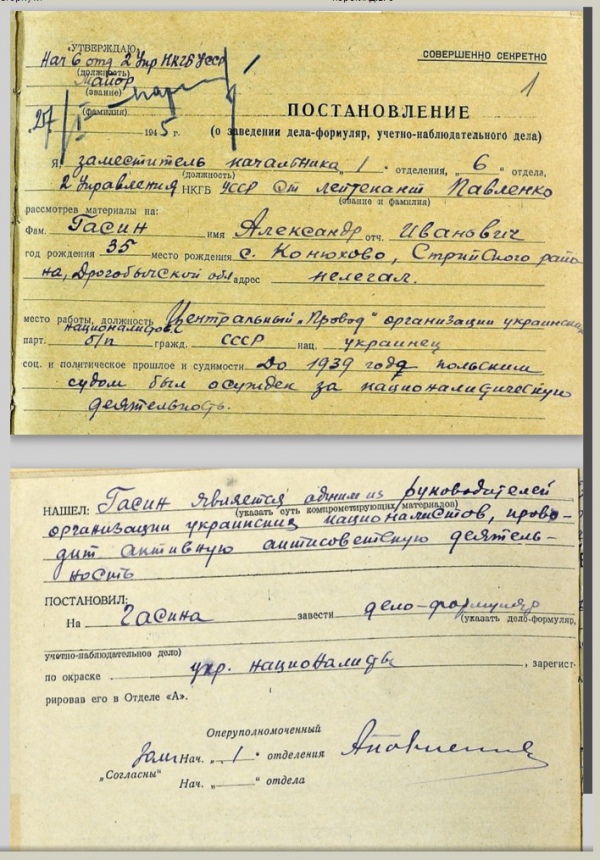 „УТВЕРЖДАЮ"
Нач 6 отд 2 Упр НКГБ УССР
(должность)
майор
(звание)
(фамилия)
1945 г.
СОВЕРШЕННО СЕКРЕТНО
1
ПОСТАНОВЛЕНИЕ
(о заведении дела-формуляр, учетно-наблюдательного дела)
Я, заместитель начальника „1" отделения, „6" отдела,
(должность)
2 Управления НКГБ УССР ст лейтенант Павленко
(звание и фамилия)
рассмотрев материалы на:
Фам. Гасин имя Александр отч. Иванович
год рождения 35 место рождения с. Конюхово, Стрийского райо
на, Дрогобычской обл адрес нелегал.
место работы, должность Центральный „Провод" организации украинских
националистов
парт. б/п гражд. СССР нац. украинец
соц. и политическое прошлое и судимости До 1939 года польским
судом был осужден за националистическую
деятельность.
НАШЕЛ: Гасин является одним из руководителей
(указать суть компрометирующих материалов)
организации украинских националистов, прово-
дит активную антисоветскую деятель-
ность
ПОСТАНОВИЛ:
На Гасина завести дело-формуляр
(указать дело-формуляр,
учетно-наблюдательное дело)
по окраске укр. националисты, зарегист-
рировав его в Отделе «А».
Оперуполномоченный
Зам Нач. „1" отделения
„Согласны"
Нач. „ " отдела